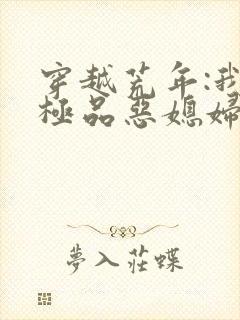 穿越荒年:我
極品惡媳婦
夢入莊蝶